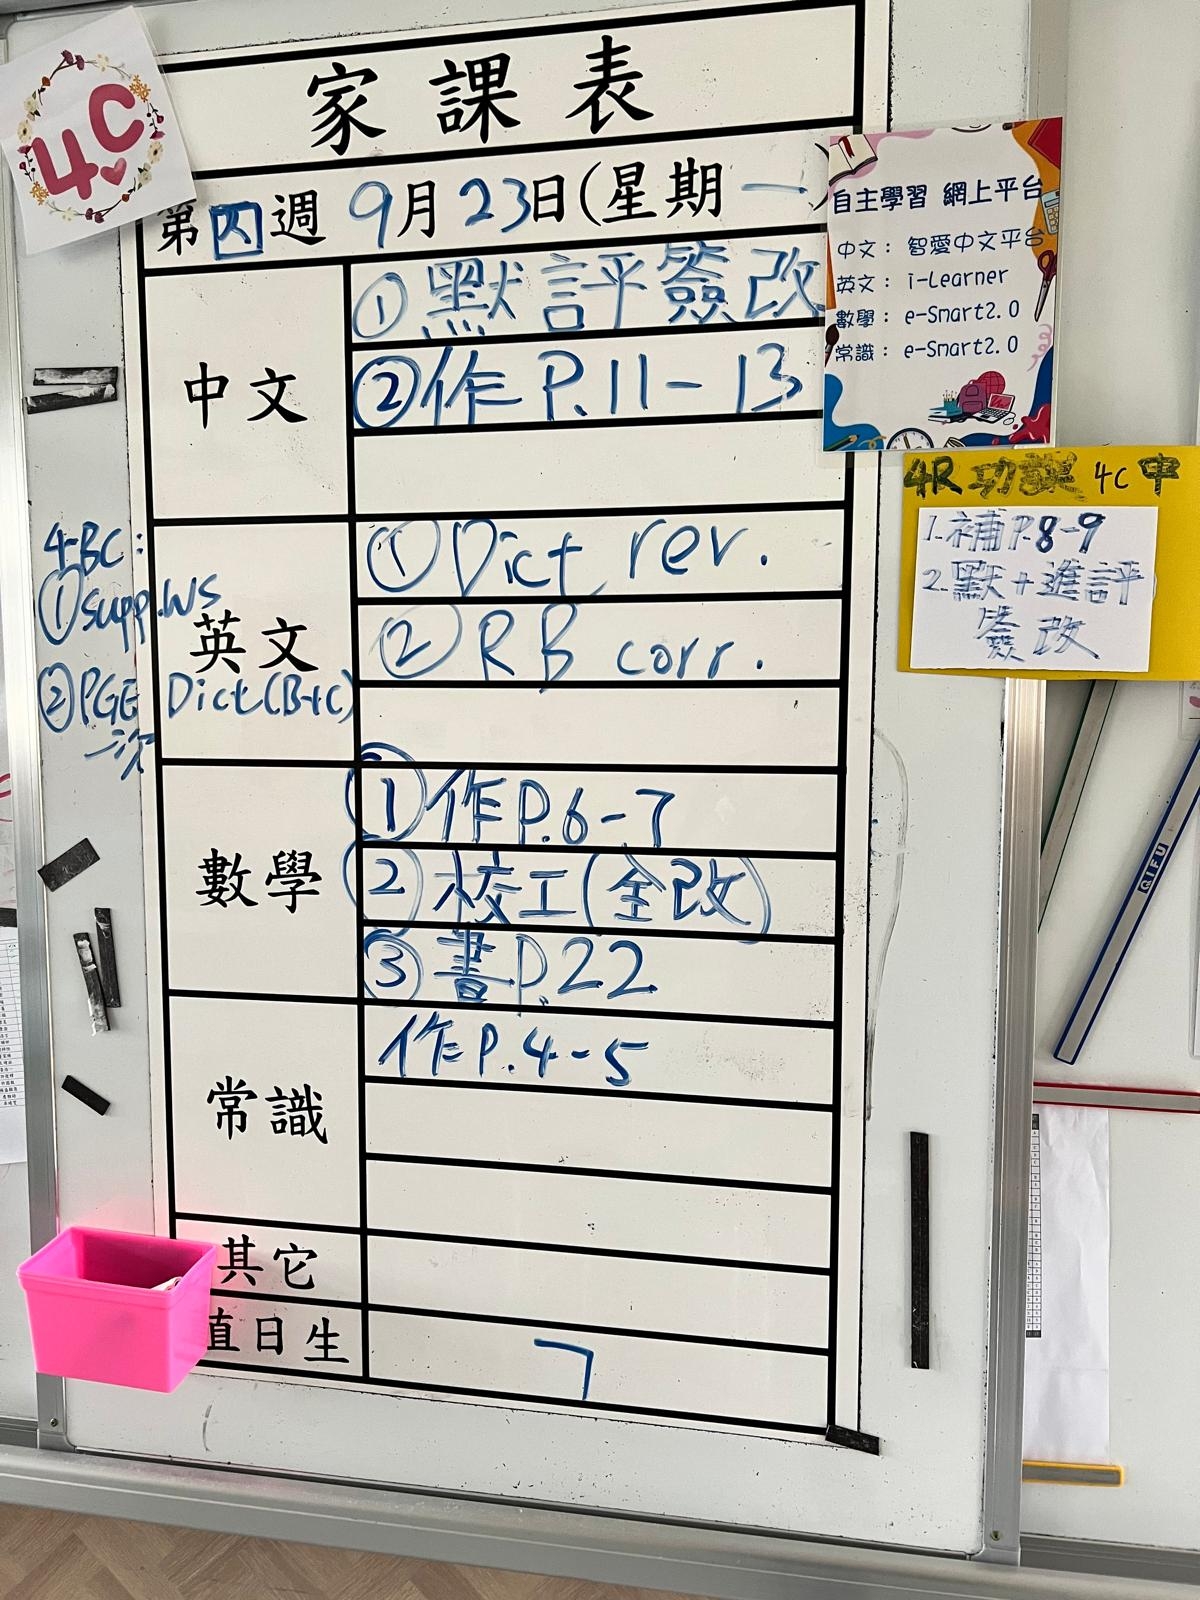 4C
家課表
第四週 9月23日(星期一)
中文
①默評簽改
②作 P.11-13
英文
①Dict rev.
②RB corr.
Dict(B+C)
4BC:
①supp.WS
②PGE
一次
數學
①作P.6-7
②校工(全改)
③書P.22
常識
作P.4-5
其它
直日生
7
自主學習 網上平台
中文： 智愛中文平台
英文： i-Learner
數學： e-Smart2.0
常識： e-Smart2.0
4R功課 4C中
1.補P.8-9
2.默+進評
簽改
QIFU